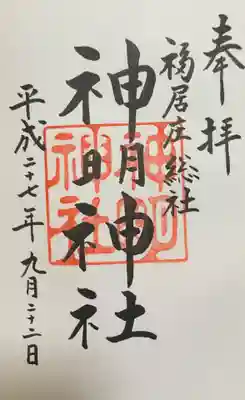 奉拝
福居庄総社
神明神社
神明
神社
平成二十七年九月二十二日